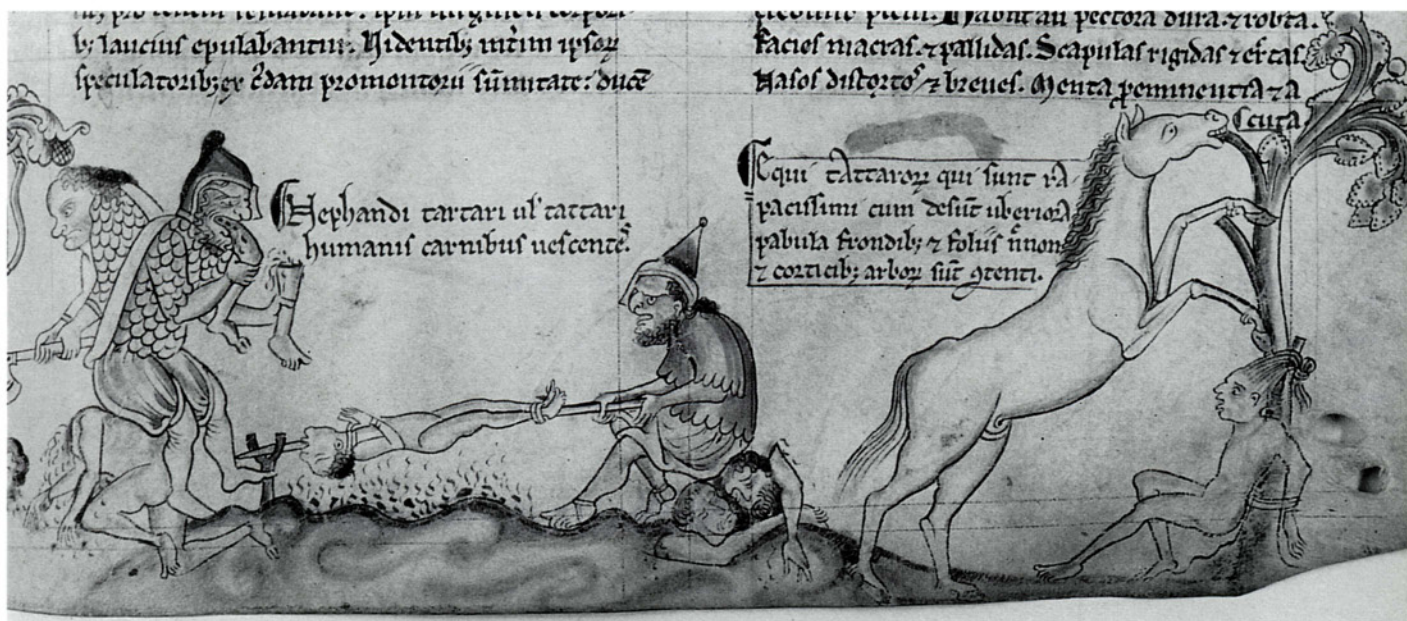 b; laucius epulabantur. Uidentib; int̃im ipsoꝝ
speculatorib; ex promontorii sūmitate: ducē
Habnt au pectora dura. ⁊ robta.
Facies macras. ⁊ pallidas. Scapulas rigidas ⁊ ectas
Nasos distortos ⁊ breues. Menta p̄eminentia ⁊ a
cuta
Nephandi tartari ul' tattari
humanis carnibus uescentes.
Equi tattaroꝝ qui sunt ra-
pacissimi cum desūt uberiora
pabula frondib; ⁊ foliis n̄non
⁊ corticib; arboꝝ sūt ꝯtenti.